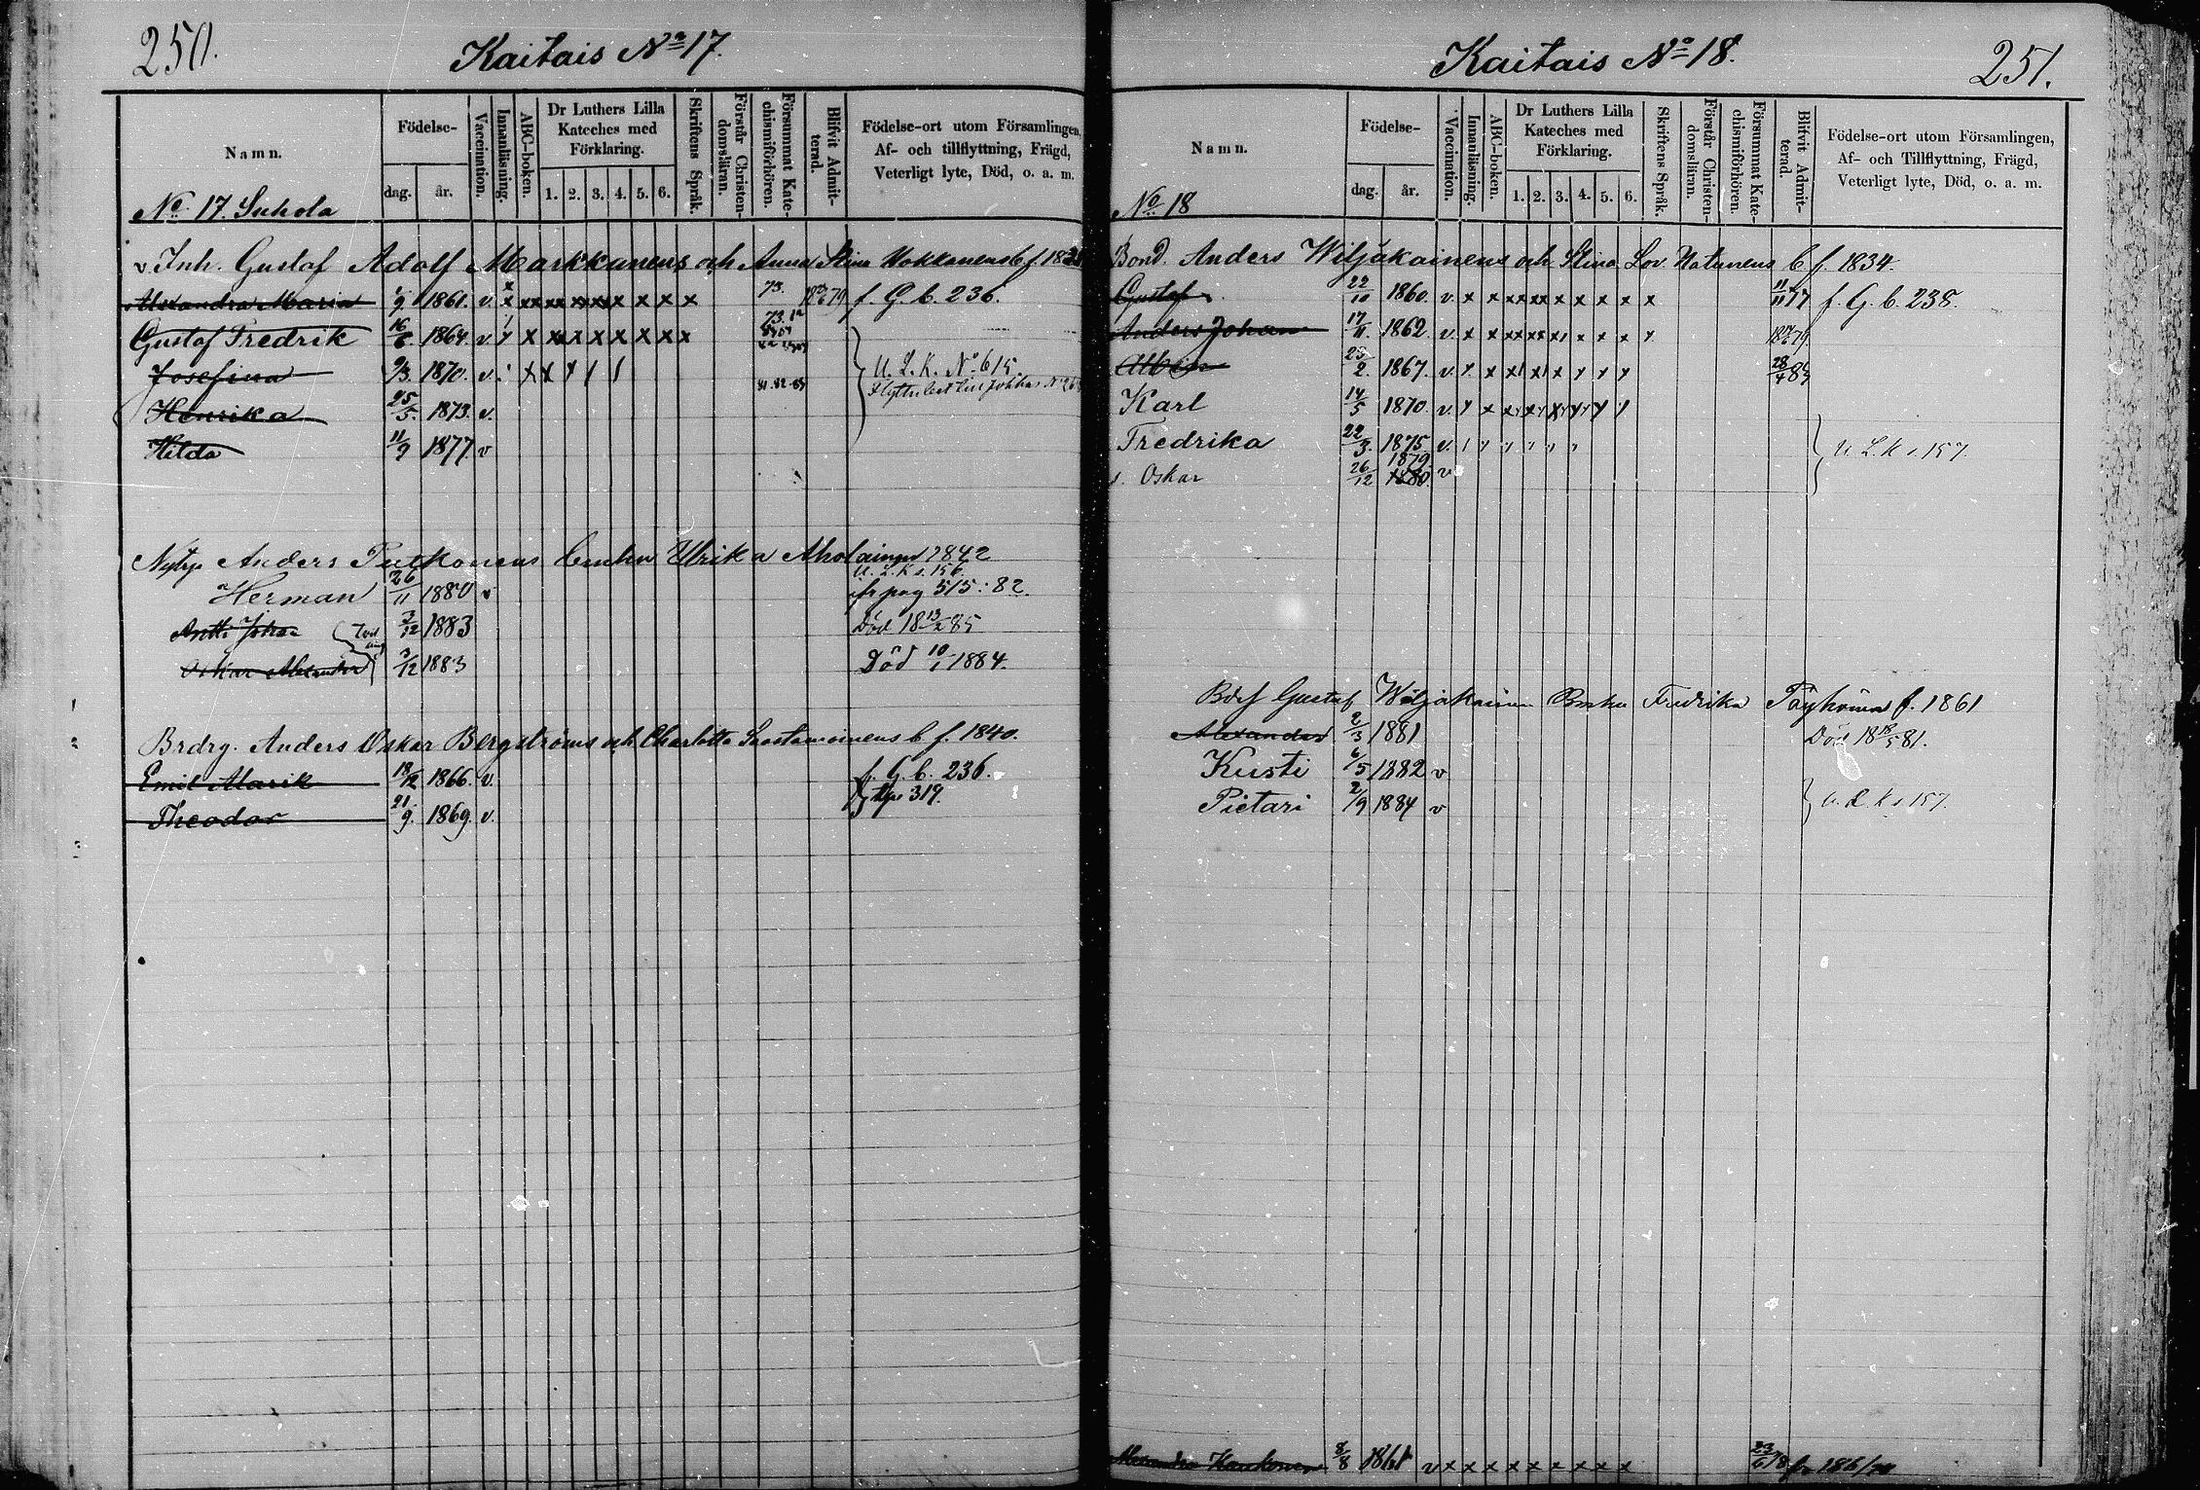 250.
Kaitais No 17.
Namn.
Födelse-
dag.
år.
Vaccination.
Innanläsning.
ABC-boken.
Dr Luthers Lilla
Kateches med
Förklaring.
1. 2. 3. 4. 5. 6.
Skriftens Språk.
Förstår Christen-
domsläran.
Försummat Kate-
chismiförhören.
Blifvit Admit-
terad.
Födelse-ort utom Församlingen,
Af- och tillflyttning, Frägd,
Veterligt lyte, Död, o. a. m.
No 17 Suhola
v Inh. Gustaf Adolf Markkanens och Anna Stina Hokkanens b f.
Alexandra Maria 1861. v. x x x x x x x x x 73. f. G. b. 236.
Gustaf Fredrik 16 1864. v. x x x x x x x x 73.
Josefina 9/3. 1870. v. U. L. K. No 615.
81. 82. 83
Henrika 25/5. 1873. v.
Hilda 11/9 1877. v
Anders Putkonens Ulrika 1842
U. L. K s. 156.
Herman 26/11 1880 v fr pag 515: 82.
Antti Juho 3/12 1883 Död 18 13/2 85
Oskar Alexander 3/12 1883 Död 10/1 1884.
Brdrg. Anders Oskar Bergströms och Charlotta Saastamoinens b f. 1840.
Emil Alarik 18/12 1866. v. f. G. b. 236.
Theodor 21/9. 1869. v. 319.
Kaitais No 18.
251.
Namn.
Födelse-
dag.
år.
Vaccination.
Innanläsning.
ABC-boken.
Dr Luthers Lilla
Kateches med
Förklaring.
1. 2. 3. 4. 5. 6.
Skriftens Språk.
Förstår Christen-
domsläran.
Försummat Kate-
chismiförhören.
Blifvit Admit-
terad.
Födelse-ort utom Församlingen,
Af- och Tillflyttning, Frägd,
Veterligt lyte, Död, o. a. m.
No 18
Bond. Anders Wiljakainens och Stina Lov. Natunens b f. 1834.
Gustaf 22/10 1860. v. x x x x x x x x x 11/11 77 f. G. b. 238.
Anders Johan 17/11. 1862. v. x x x x x x x x
Albin 23/2. 1867. v. x x x x x x x x 28/4 83
Karl 14/5 1870. v.
Fredrika 22/3. 1875 v. U. L. K s. 157.
s. Oskar 26/12 1879 1880. v
Bdsf Gustaf Wiljakainen Fredrika Töyhönen f. 1861
Alexander 2/3 1881 Död 18 18/5 81.
Kusti 6/5 1882 v
Pietari 2/9 1884 v U. L. K s 157
Alexandra Kaukonen 8/8 1861 v x x x x x x x x